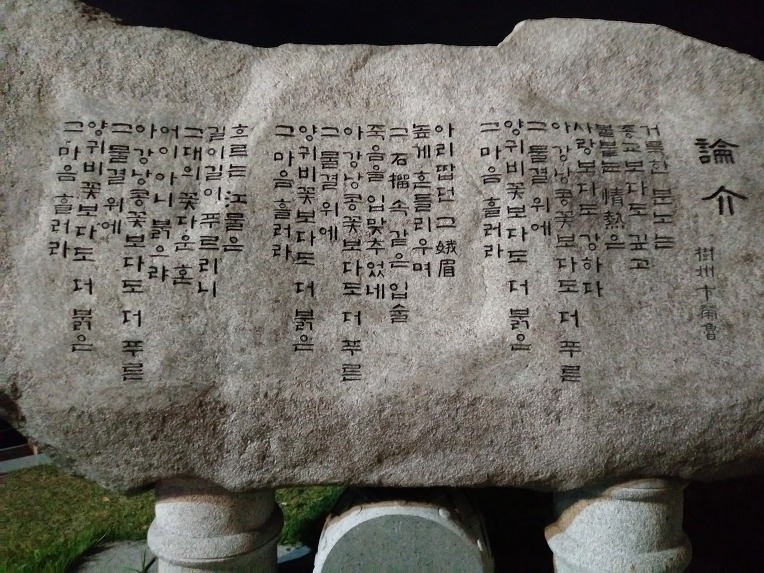 論介
樹州 卞榮魯
거룩한 분노는
종교보다도 깊고
불붙는 情熱은
사랑보다도 강하다
아 강낭콩꽃보다도 더 푸른
그 물결 위에
양귀비꽃보다도 더 붉은
그 마음 흘러라
아리땁던 그 娥眉
높게 흔들리우며
그 石榴 속 같은 입술
죽음을 입맞추었네
아 강낭콩꽃보다도 더 푸른
그 물결 위에
양귀비꽃보다도 더 붉은
그 마음 흘러라
흐르는 江물은
길이길이 푸르리니
그대의 꽃다운 혼
어이 아니 붉으랴
아 강낭콩꽃보다도 더 푸른
그 물결 위에
양귀비꽃보다도 더 붉은
그 마음 흘러라